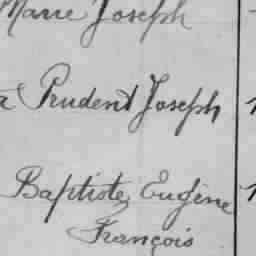 Marie Joseph
a Prudent Joseph
Baptiste Eugène
François